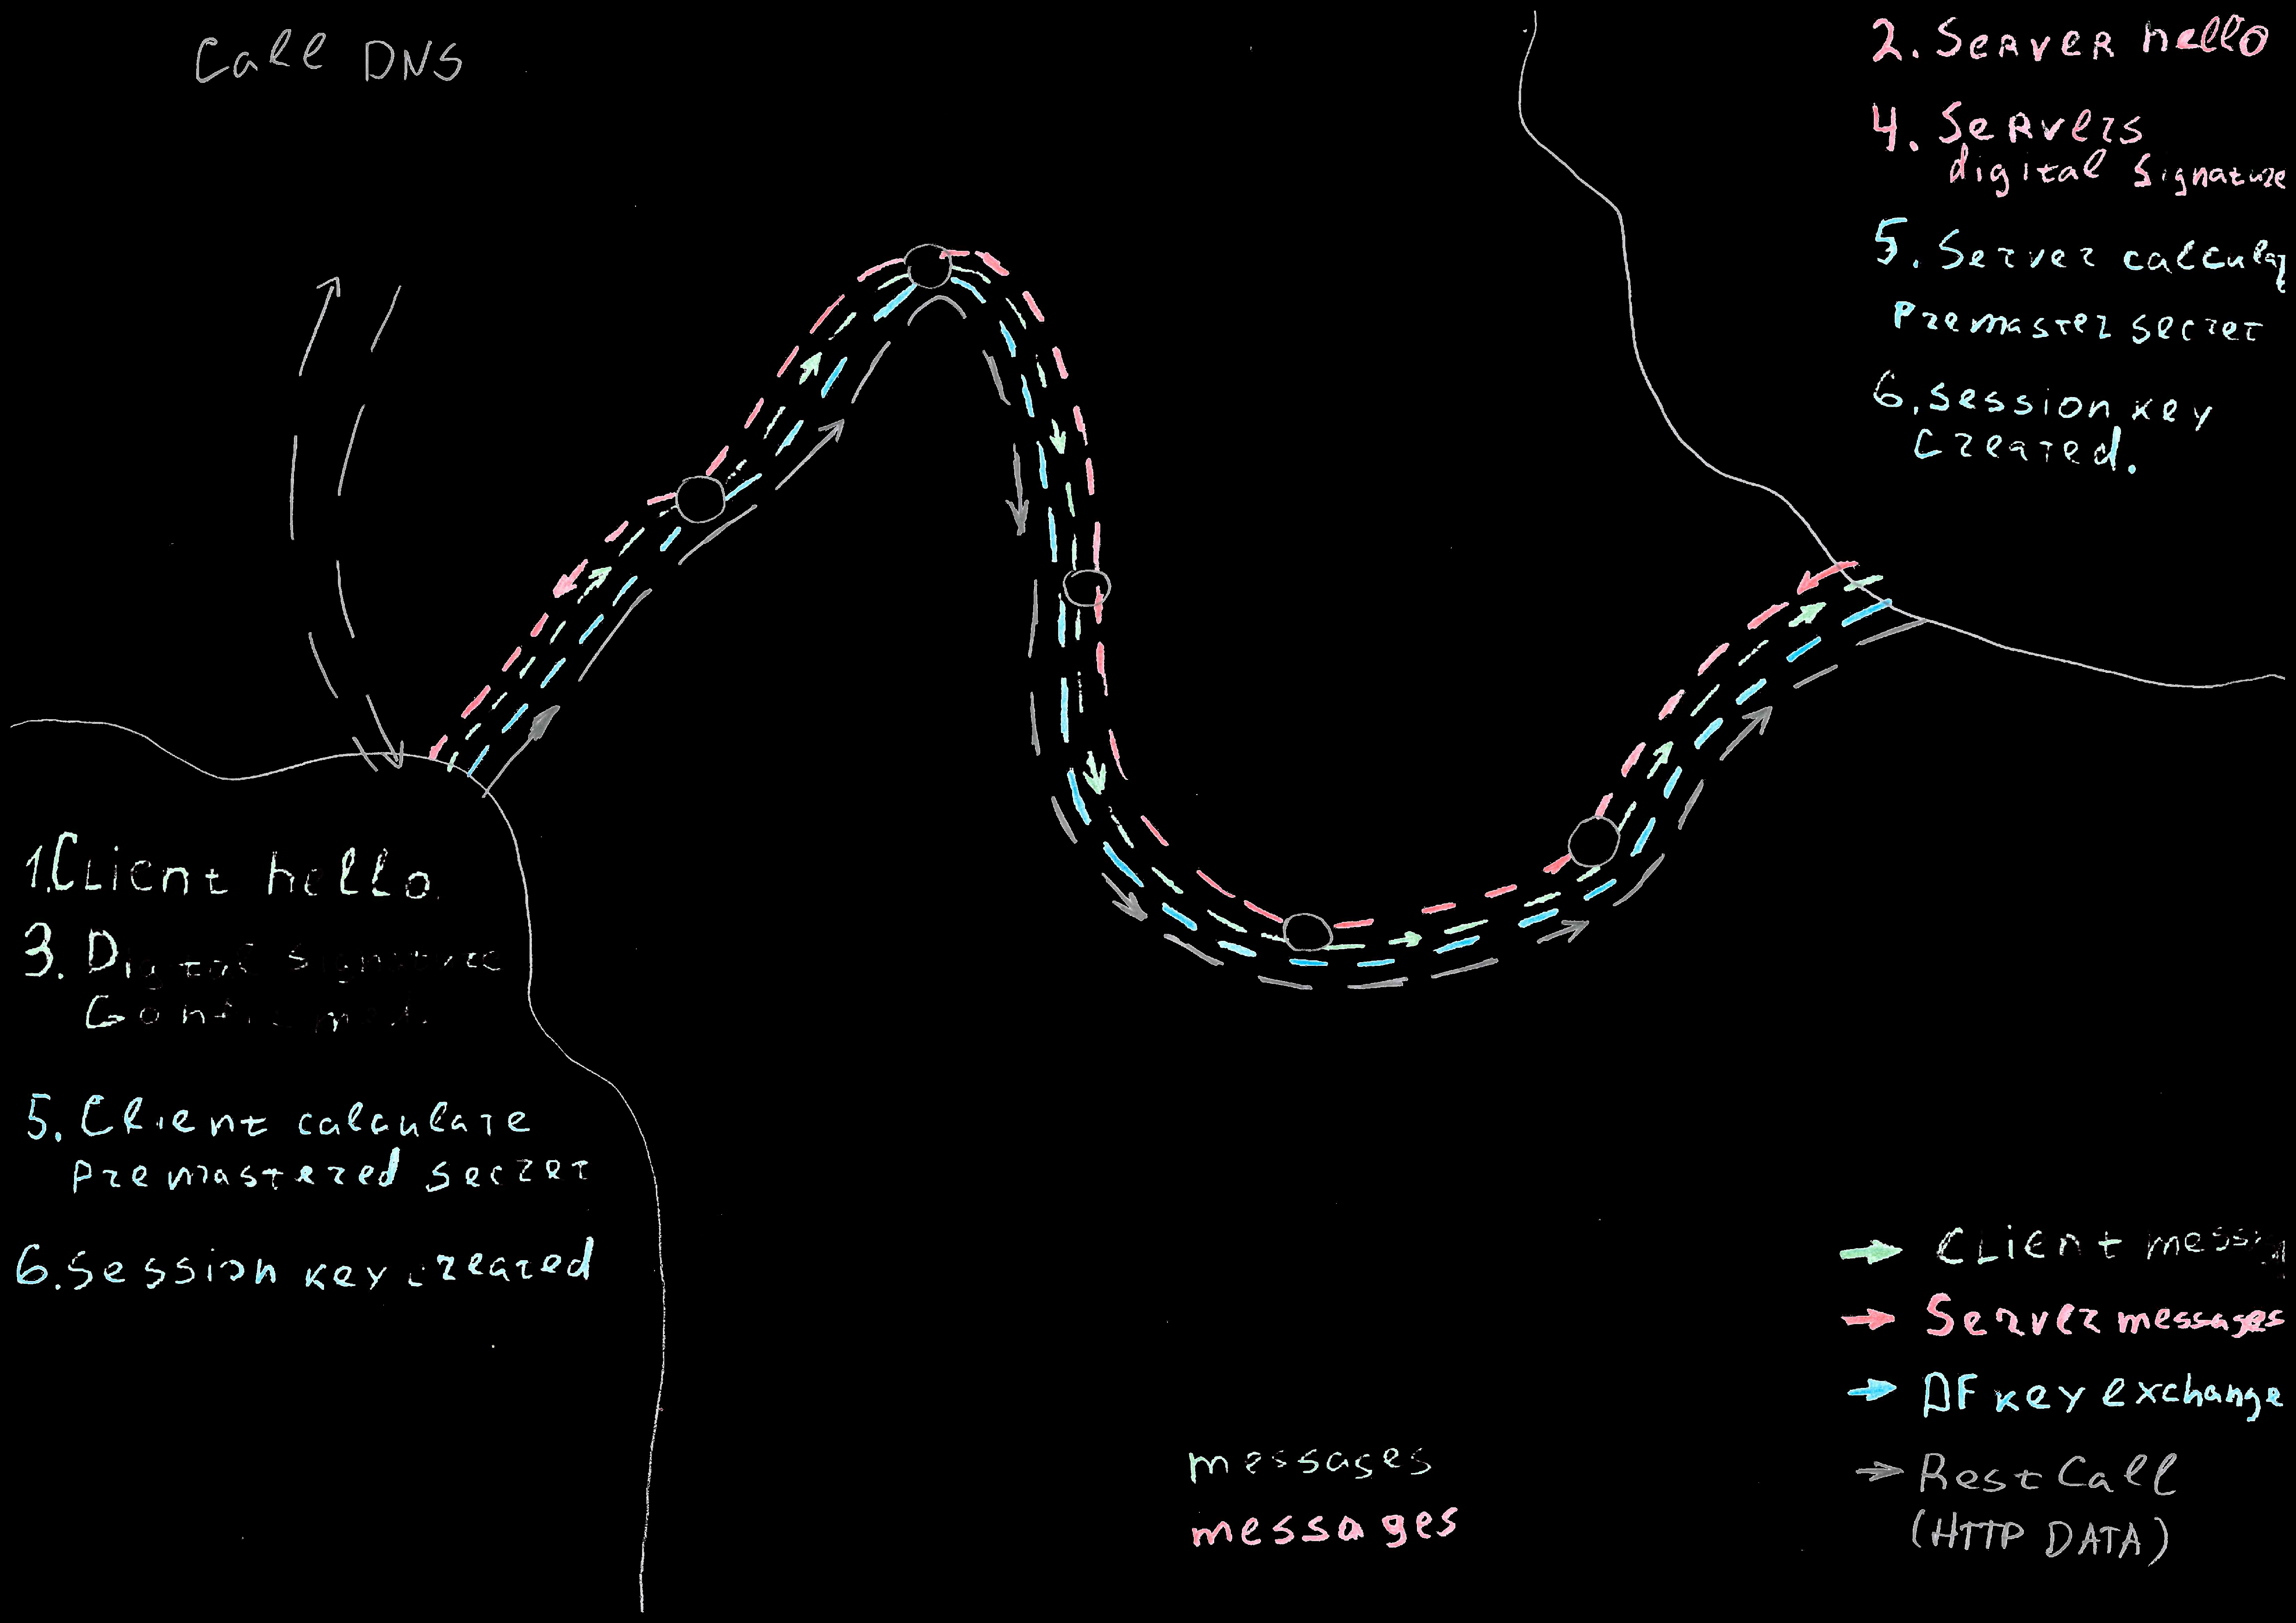 Call DNS
2. Server hello
4. Servers
digital signature
5. Server calcula
premaster secret
6. session key
created.
1. Client hello.
3. Digital signature
Confirmed.
5. Client calculate
premastered secret
6. session key created
Client messa
Server messages
DF key exchange
Rest Call
(HTTP DATA)
messages
messages